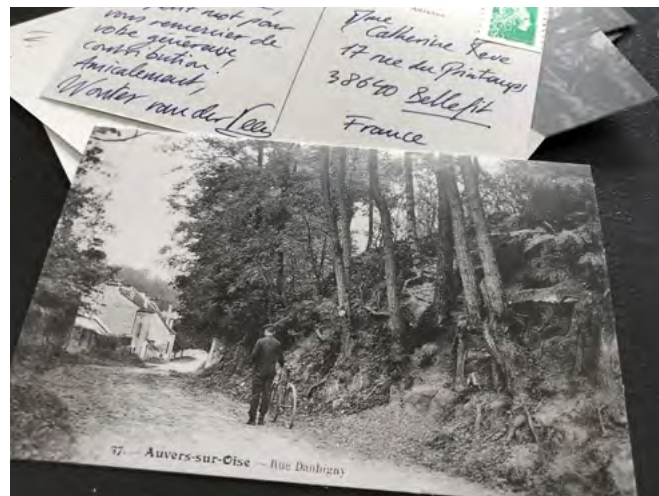 mot pour
vous remercier de
votre généreuse
contribution!
Amicalement,
Wouter van der Veen
Catherine Reve
17 rue du Printemps
38640 Bellefit
France
37. — Auvers-sur-Oise — Rue Daubigny